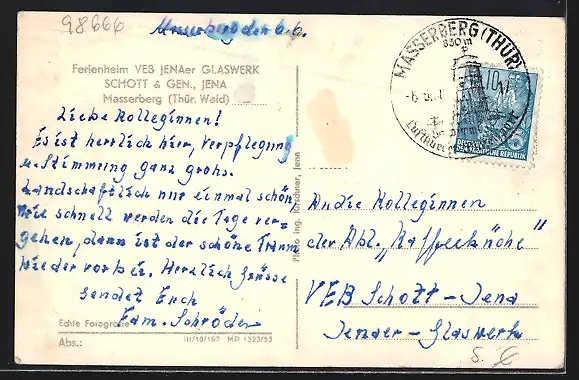 98666
Masserberg den 6.6.
Ferienheim VEB JENAer GLASWERK
SCHOTT & GEN., JENA
Masserberg (Thür. Wald)
Liebe Kolleginnen!
Es ist herrlich hier, Verpflegung
u. Stimmung ganz grohs.
Landschaftlich nur einmal schön,
wie schnell werden die Tage ver-
gehen, dann ist der schöne Traum
wieder vorbei. Herzlich Grüsse
sendet Euch
Fam. Schröder
Echte Fotografie
Abs.:
III/18/197 MP 1323/53
Photo Ing. Kirschner, Jena
MASSERBERG (THÜR)
830 m
DEUTSCHE DEMOKRATISCHE REPUBLIK
An die Kolleginnen
der Abt. "Kaffeeküche"
VEB Schott - Jena
Jenaer - Glaswerk